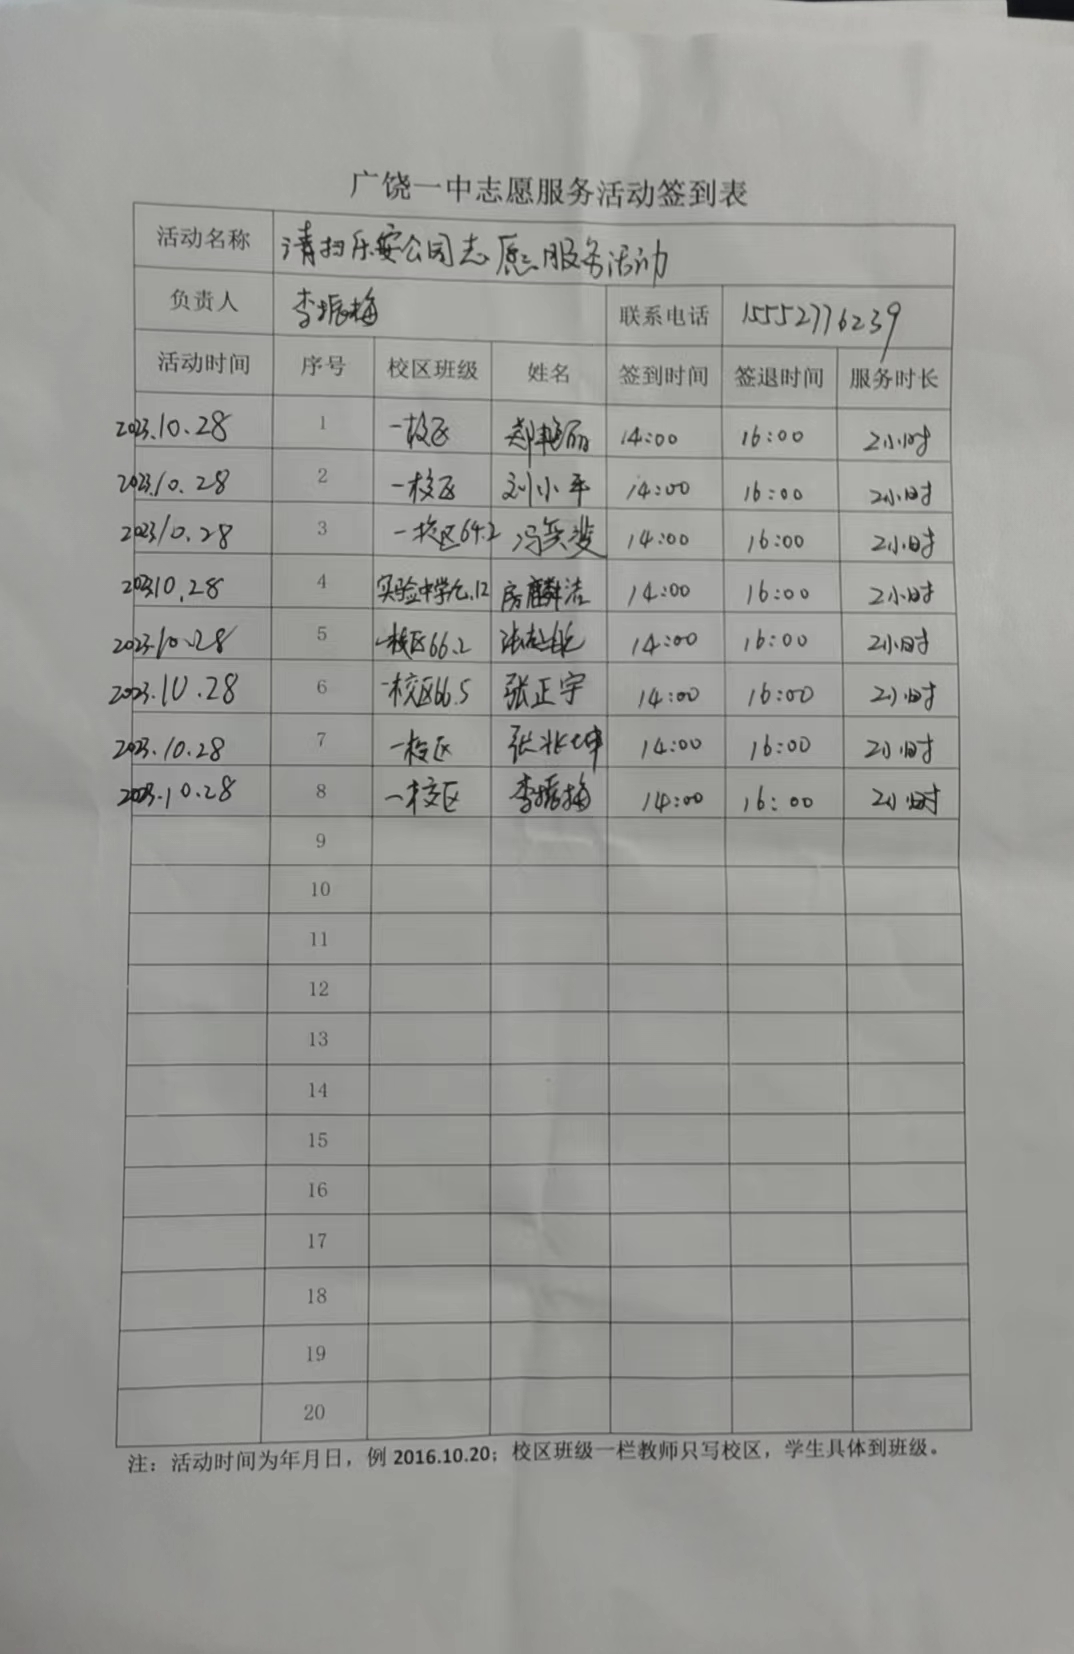 广饶一中志愿服务活动签到表
活动名称 清扫乐安公园志愿服务活动
负责人 李振梅 联系电话 15552776239
活动时间 序号 校区班级 姓名 签到时间 签退时间 服务时长
2023.10.28 1 一校区 郑艳丽 14:00 16:00 2小时
2023.10.28 2 一校区 刘小平 14:00 16:00 2小时
2023.10.28 3 一校区64.2 冯奕斐 14:00 16:00 2小时
2023.10.28 4 实验中学七.12 房麟洁 14:00 16:00 2小时
2023.10.28 5 一校区66.2 14:00 16:00 2小时
2023.10.28 6 一校区66.5 张正宇 14:00 16:00 2小时
2023.10.28 7 一校区 张兆坤 14:00 16:00 2小时
2023.10.28 8 一校区 李振梅 14:00 16:00 2小时
9
10
11
12
13
14
15
16
17
18
19
20
注：活动时间为年月日，例 2016.10.20；校区班级一栏教师只写校区，学生具体到班级。